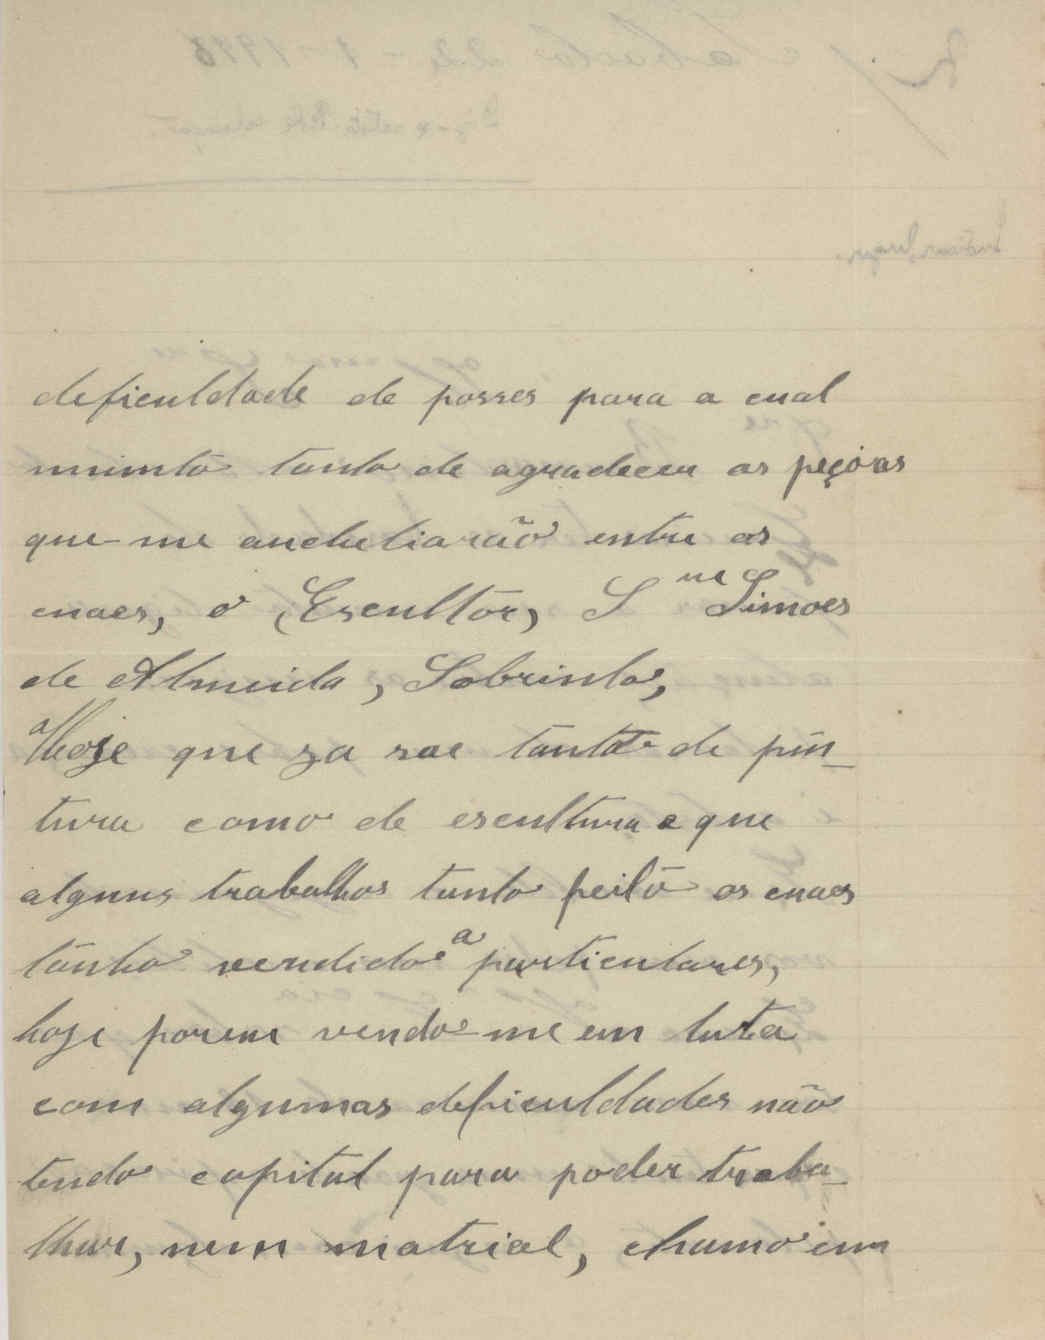 deficuldade de posses para a cual
muinto tanto de agradecer as peçoas
que me auchiliarão entre as
cuaes, o Escultor, Snr Simoes
de Almeida, Sobrinho,
Hoje que za sae tanto de pin-
tura como de escultura e que
alguns trabalhos tanto feito os cuaes
tanho vendido a particulares,
hoje porem vendo-me em luta
com algumas deficuldades não
tendo capital para poder traba-
lhar, nem matrial, chamo im